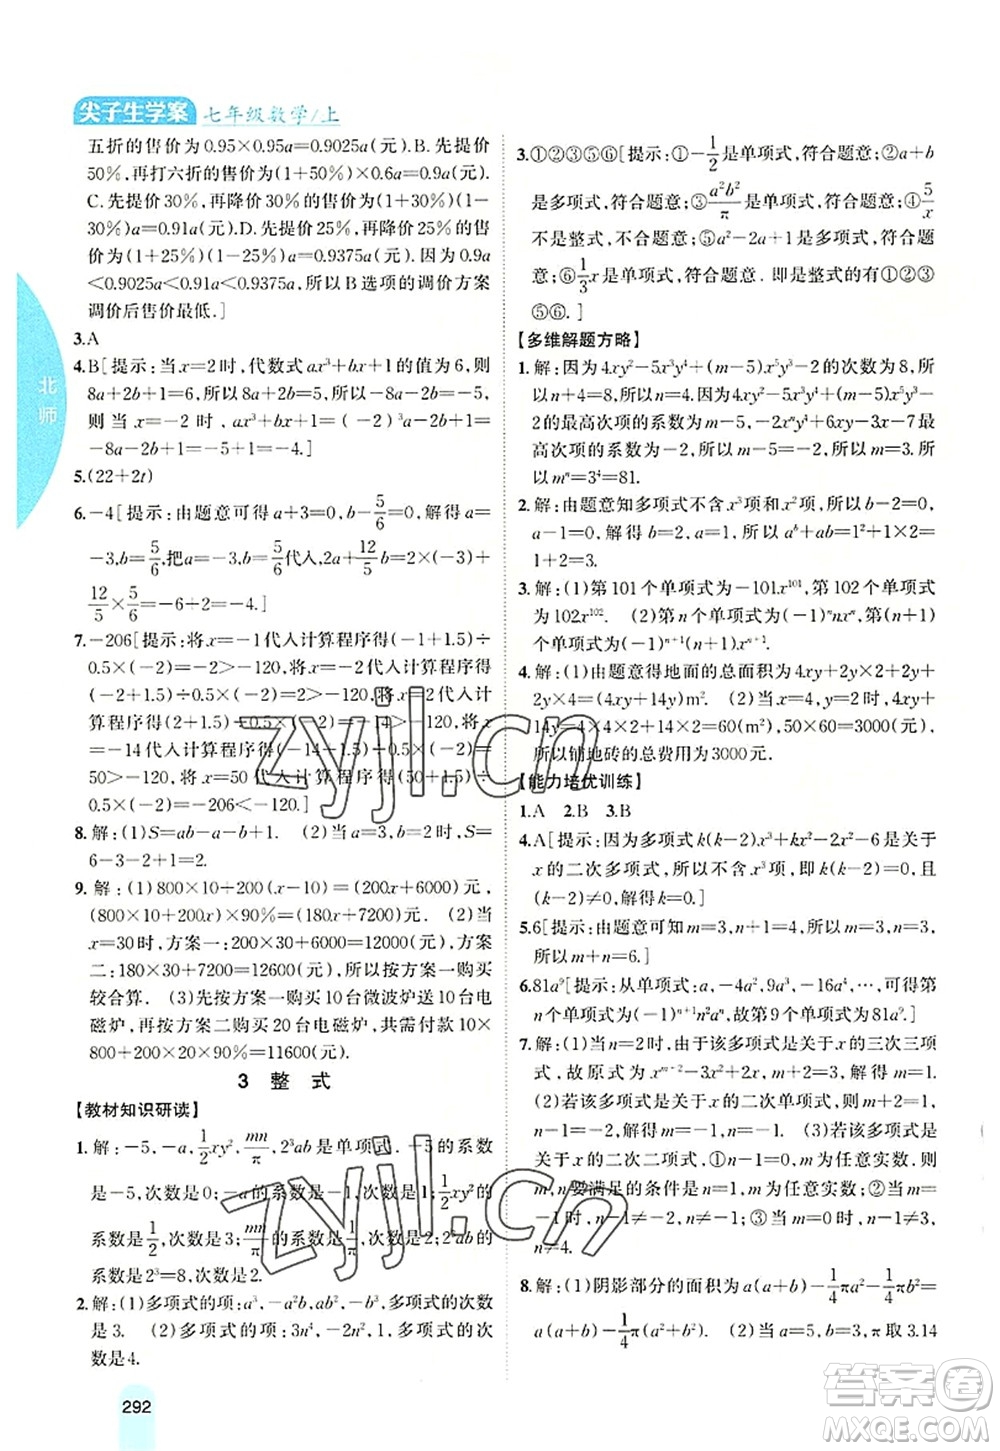 尖子生学案 七年级数学/上
五折的售价为 0.95×0.95a=0.9025a(元).B.先提价
50%,再打六折的售价为(1+50%)×0.6a=0.9a(元).
C.先提价30%,再降价30%的售价为(1+30%)(1-
30%)a=0.91a(元).D.先提价25%,再降价25%的售价
为(1+25%)(1-25%)a=0.9375a(元).因为0.9a
<0.9025a<0.91a<0.9375a,所以B选项的调价方案
调价后售价最低.]
3.A
4.B[提示:当x=2时,代数式ax³+bx+1的值为6,则
8a+2b+1=6,所以8a+2b=5,所以-8a-2b=-5,
则当x=-2时,ax³+bx+1=(-2)³a-2b+1=
-8a-2b+1=-5+1=-4.]
5.(22+2t)
6.-4[提示:由题意可得a+3=0,b-5/6=0,解得a=
-3,b=5/6,把a=-3,b=5/6代入,2a+12/5b=2×(-3)+
12/5×5/6=-6+2=-4.]
7.-206[提示:将x=-1代入计算程序得(-1+1.5)÷
0.5×(-2)=-2>-120,将x=-2代入计算程序得
(-2+1.5)÷0.5×(-2)=2>-120,将x=2代入计
算程序得(2+1.5)÷0.5×(-2)=-14>-120,将x=
-14代入计算程序得(-14+1.5)÷0.5×(-2)=50>
-120,将x=50代入计算程序得(50+1.5)÷
0.5×(-2)=-206<-120.]
8.解:(1)S=ab-a-b+1. (2)当a=3,b=2时,S=
6-3-2+1=2.
9.解:(1)800×10+200(x-10)=(200x+6000)元,
(800×10+200x)×90%=(180x+7200)元. (2)当
x=30时,方案一:200×30+6000=12000(元),方案
二:180×30+7200=12600(元),所以按方案一购买
较合算. (3)先按方案一购买10台微波炉送10台电
磁炉,再按方案二购买20台电磁炉,共需付款10×
800+200×20×90%=11600(元).
3 整式
【教材知识研读】
1.解:-5,-a,1/2xy²,mn/π,2³ab是单项式.-5的系数
是-5,次数是0;-a的系数是-1,次数是1;1/2xy²的系
数是1/2,次数是3;mn/π的系数是1/π,次数是2;2³ab的系
数是2³=8,次数是2.
2.解:(1)多项式的项:a³,-a²b,ab²,-b³,多项式的次数
是3. (2)多项式的项:3n⁴,-2n²,1,多项式的次
数是4.
3.①②③⑤⑥[提示:①-1/2是单项式,符合题意;②a+b
是多项式,符合题意;③a²b²/π是单项式,符合题意;④5/x
不是整式,不符合题意;⑤a²-2a+1是多项式,符合题
意;⑥1/3x是单项式,符合题意.所以是整式的有①②③
⑤⑥.]
【多维解题方略】
1.解:因为4xy²-5x³y⁴+(m-5)x⁵y³-2的次数为8,所
以n+5=8,所以n=3.因为4xy²-5x³y⁴+(m-5)x⁵yⁿ
-2的最高次项的系数为m-5,-2x²y⁴+6xy-3x-7的
最高次项的系数为-2,所以m-5=-2,所以m=3,所
以mⁿ⁺¹=3⁴=81.
2.解:由题意知多项式不含x³项和x²项,所以b-2=0,
a-1=0,所以b=2,a=1,所以aᵇ+ab+b²=1²+1×2+
1+2=3.
3.解:(1)第101个单项式为-101x¹⁰¹,第102个单项式
为102x¹⁰². (2)第n个单项式为(-1)ⁿnxⁿ,第(n+1)
个单项式为(-1)ⁿ⁺¹(n+1)xⁿ⁺¹.
4.解:(1)由题意得地面的总面积为4xy+2y×2+4y+
2y×4=(4xy+14y)m². (2)当x=4,y=2时,4xy+
14y=4×4×2+14×2=60(m²),50×60=3000(元).
所以铺地砖的总费用为3000元.
【能力培优训练】
1.A 2.B 3.B
4.A[提示:因为多项式k(k-2)x³+kx²-2x²-6是关于
x的二次多项式,所以不含x³项,所以k(k-2)=0且
(k-2)≠0,解得k=0.]
5.6[提示:由题意可知m=3,n+1=4,所以n=3,所以
m+n=6.]
6.81a⁹[提示:从单项式:a,-4a²,9a³,-16a⁴,…,可得到
第n项是(-1)ⁿ⁺¹n²aⁿ,故第9个单项式为81a⁹.]
7.解:(1)当n=2时,由于该多项式为关于x的三次三项
式,故原式=(m+1)x³-2x²+3x,所以m≠-1.
(2)若该多项式是关于x的二次单项式,则m+1=2,
n=-1,所以m=1,n=-1. (3)若该多项式为
关于x的二次二项式,①n=-1,m≠1且m为任意实数,所以
m,n要满足的条件是n=1,m为任意实数;②当m=
-1时,n≠-1;③当m=0时,n=4,所以m=
0,n=4.
8.解:(1)阴影部分的面积为a(a+b)-1/4πa²-1/4πa²=
a(a+b)-1/2πa². (2)当a=4,b=1,π取3.14
292
北师
zyjl.cn
zyjl.cn
答案圈
MXQE.COM